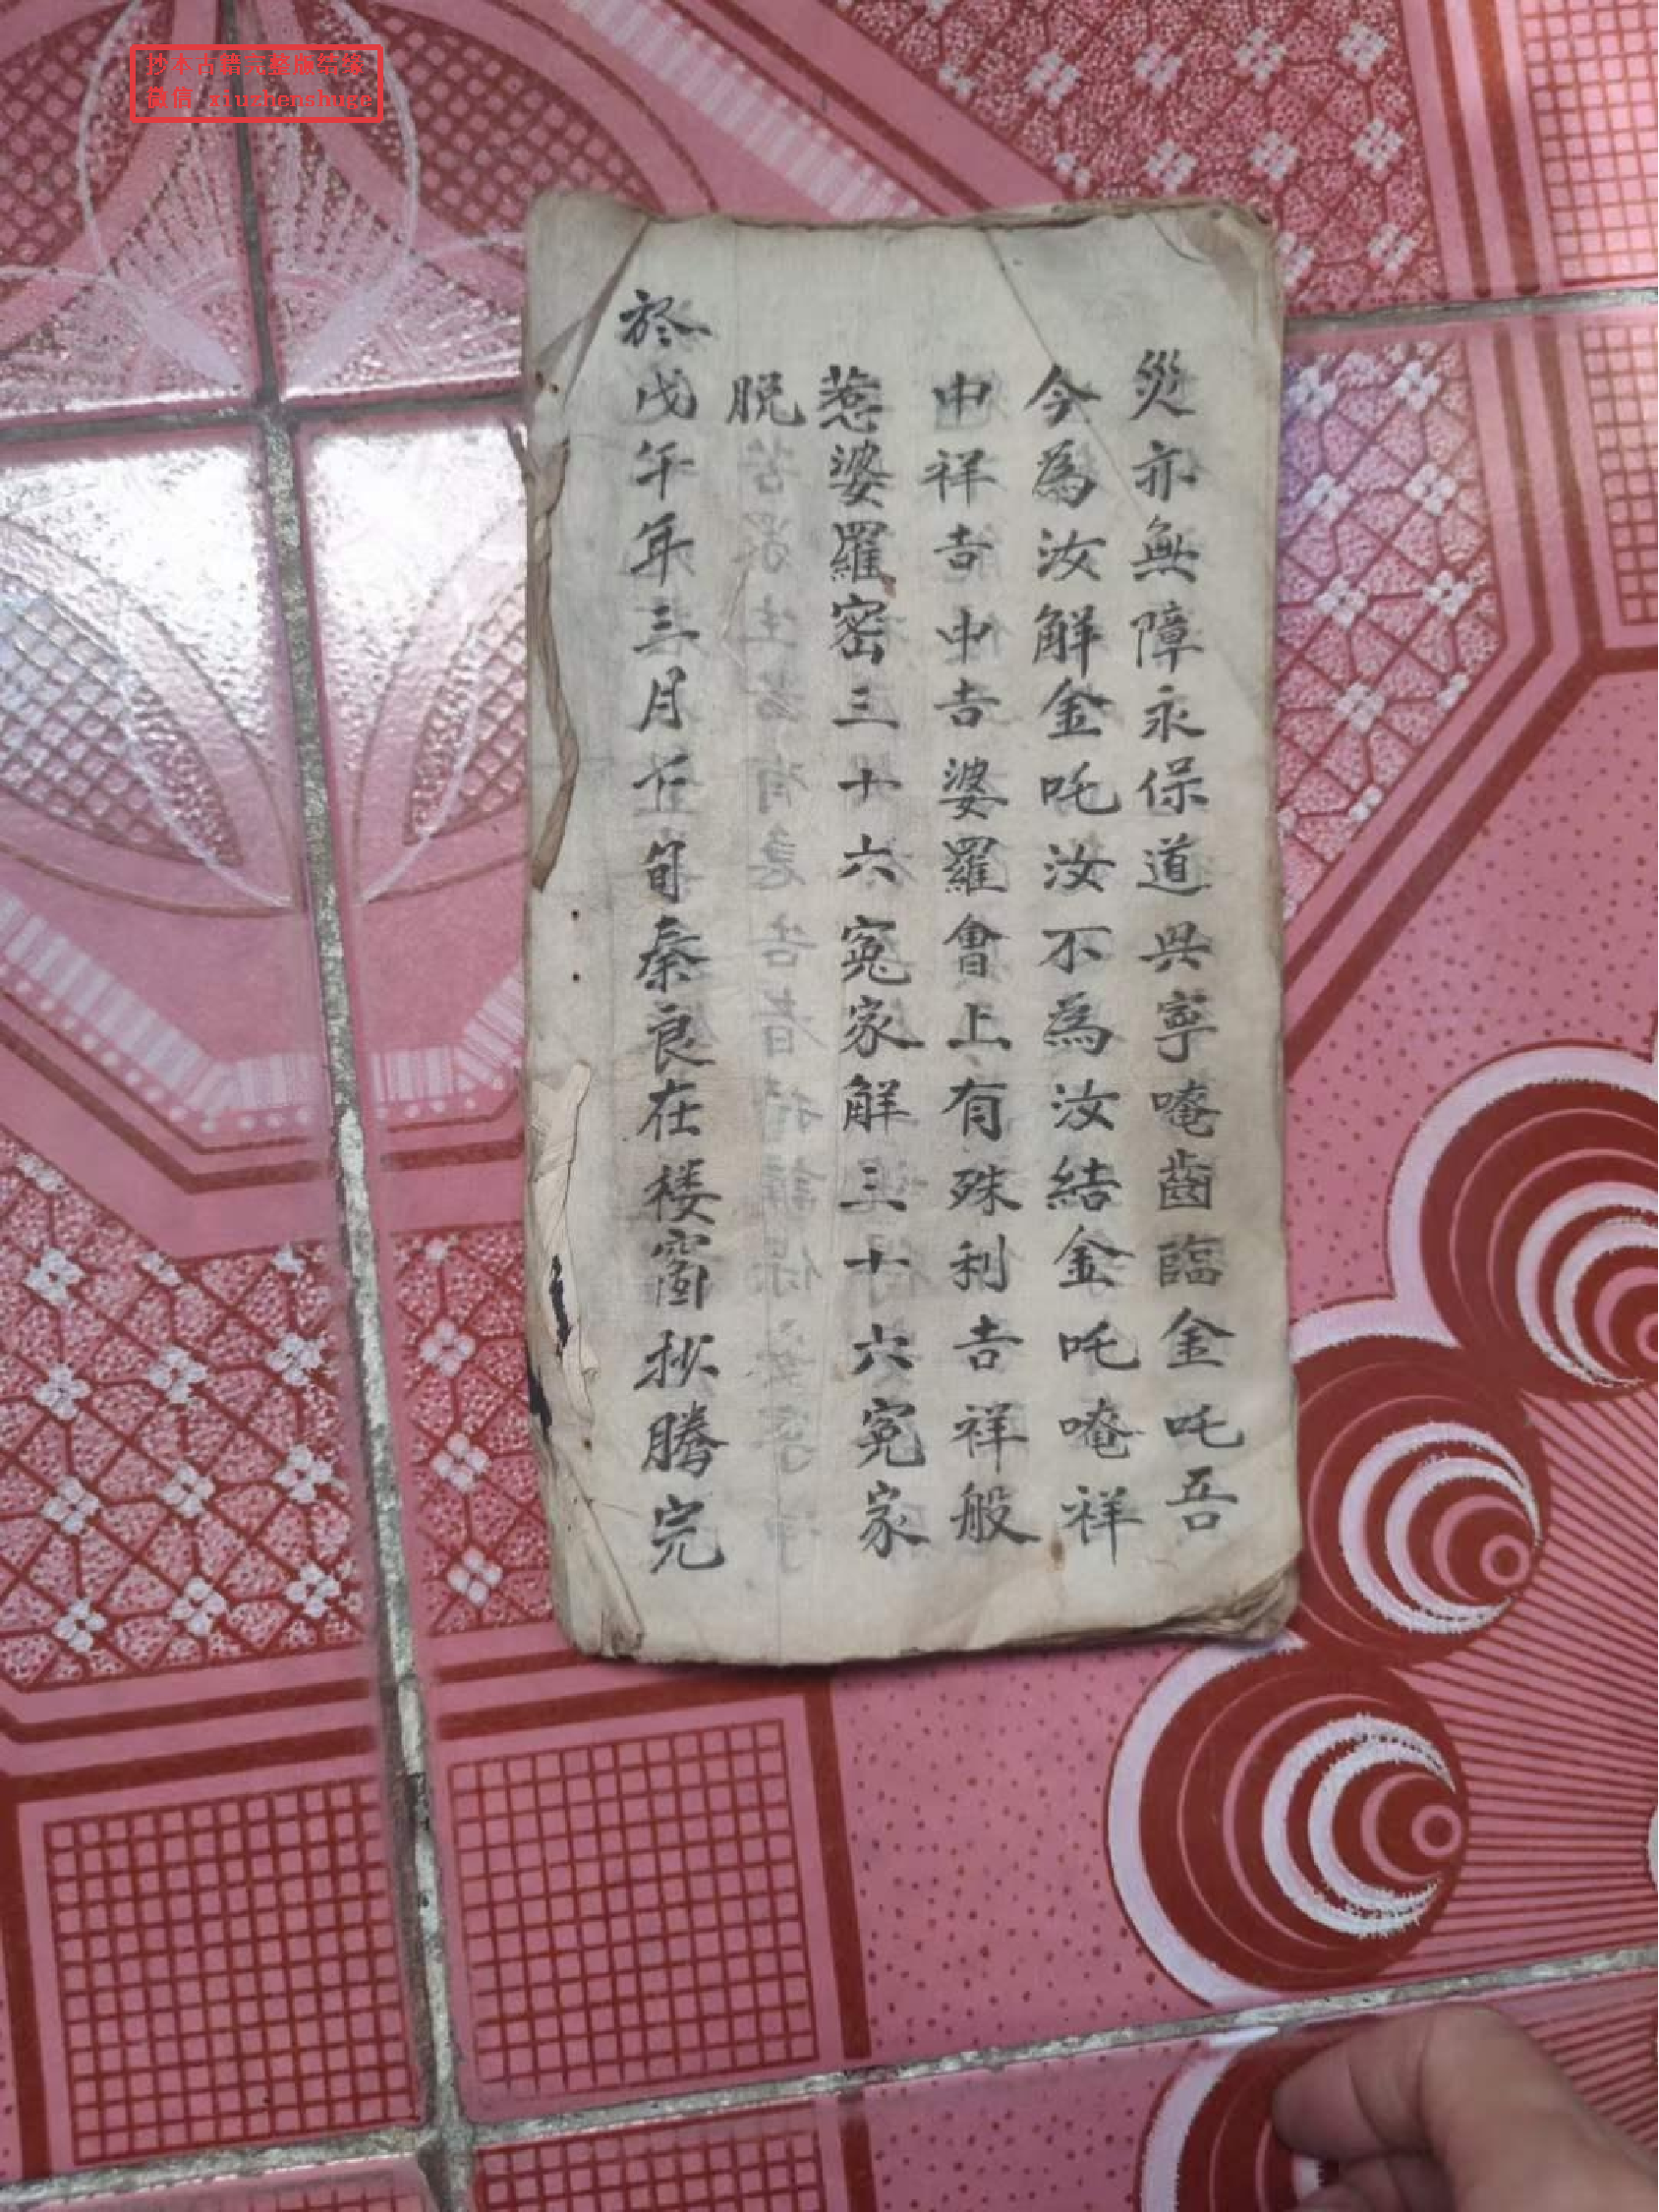 抄本古籍完整版结缘
微信 xiuzhenshuge
災亦無障永保道興寜唵齒臨金吒吾
今為汝解金吒汝不為汝結金吒唵祥
中祥吉中吉婆羅會上有殊利吉祥般
惹婆羅密三十六冤家解三十六冤家
脱
於戊午年三月下旬秦良在楼窗抄腾完